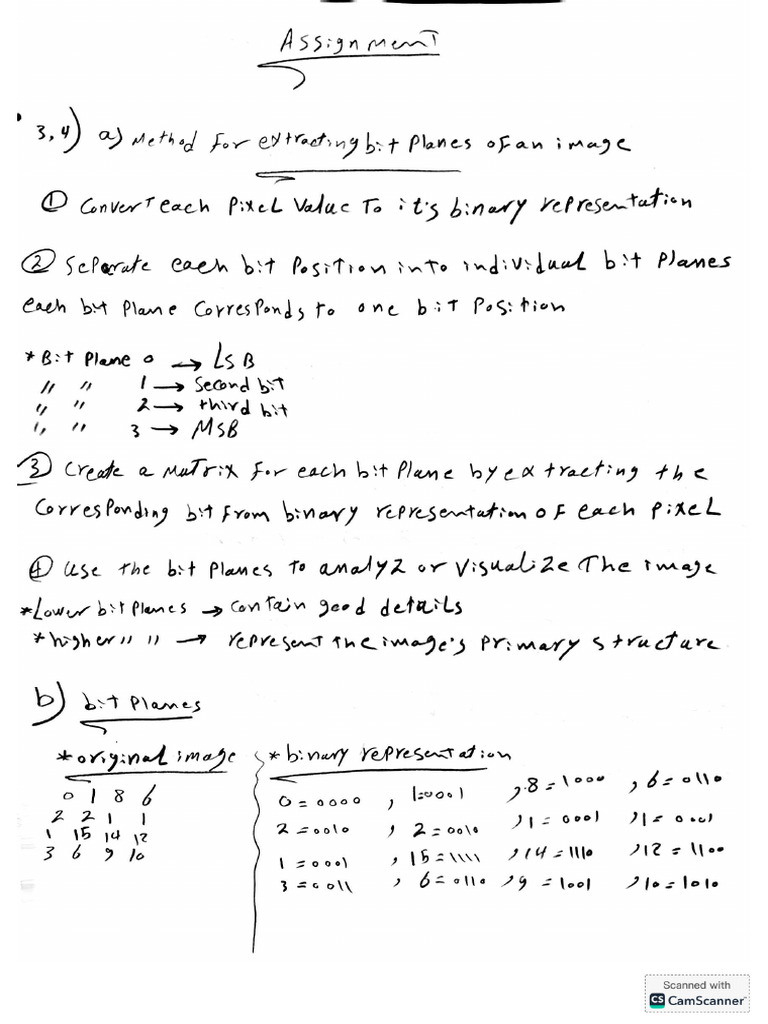 Assignment
3,4) a) Method for extracting bit planes of an image
① Convert each pixel value to it's binary representation
② Separate each bit position into individual bit planes
each bit plane corresponds to one bit position
* Bit Plane 0 → LSB
〃 〃 1 → second bit
〃 〃 2 → third bit
〃 〃 3 → MSB
③ Create a matrix for each bit plane by extracting the
corresponding bit from binary representation of each pixel
④ use the bit planes to analyz or visualize the image
* Lower bit planes → contain good details
* higher 〃 〃 → represent the image's primary structure
b) bit planes
* original image
0 1 8 6
2 2 1 1
1 15 14 12
3 6 9 10
* binary representation
0 = 0000 , 1=0001 , 8 = 1000 , 6 = 0110
2 = 0010 , 2 = 0010 , 1 = 0001 , 1 = 0001
1 = 0001 , 15 = 1111 , 14 = 1110 , 12 = 1100
3 = 0011 , 6 = 0110 , 9 = 1001 , 10 = 1010
Scanned with
CS CamScanner